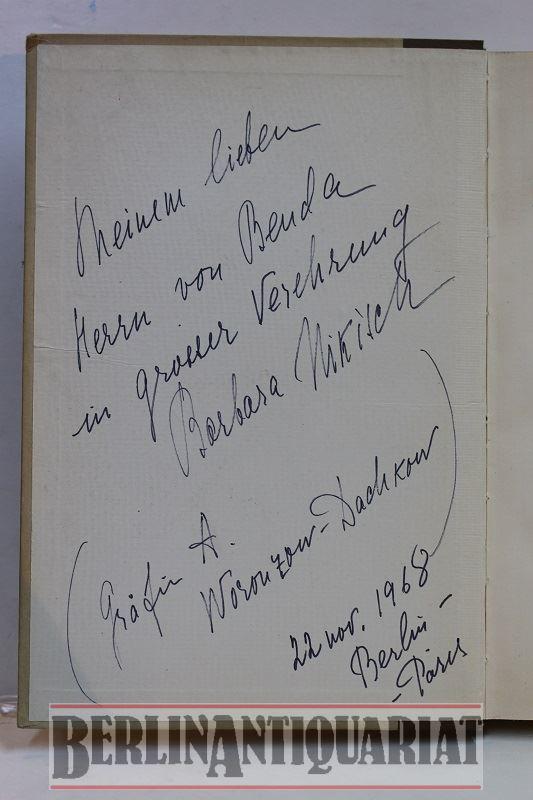 Meinem lieben
Herrn von Benda
in grosser Verehrung
Barbara Nikisch
(Gräfin A.
Woronzow-Dachkow)
22 nov. 1968
Berlin -
- Paris
BERLINANTIQUARIAT